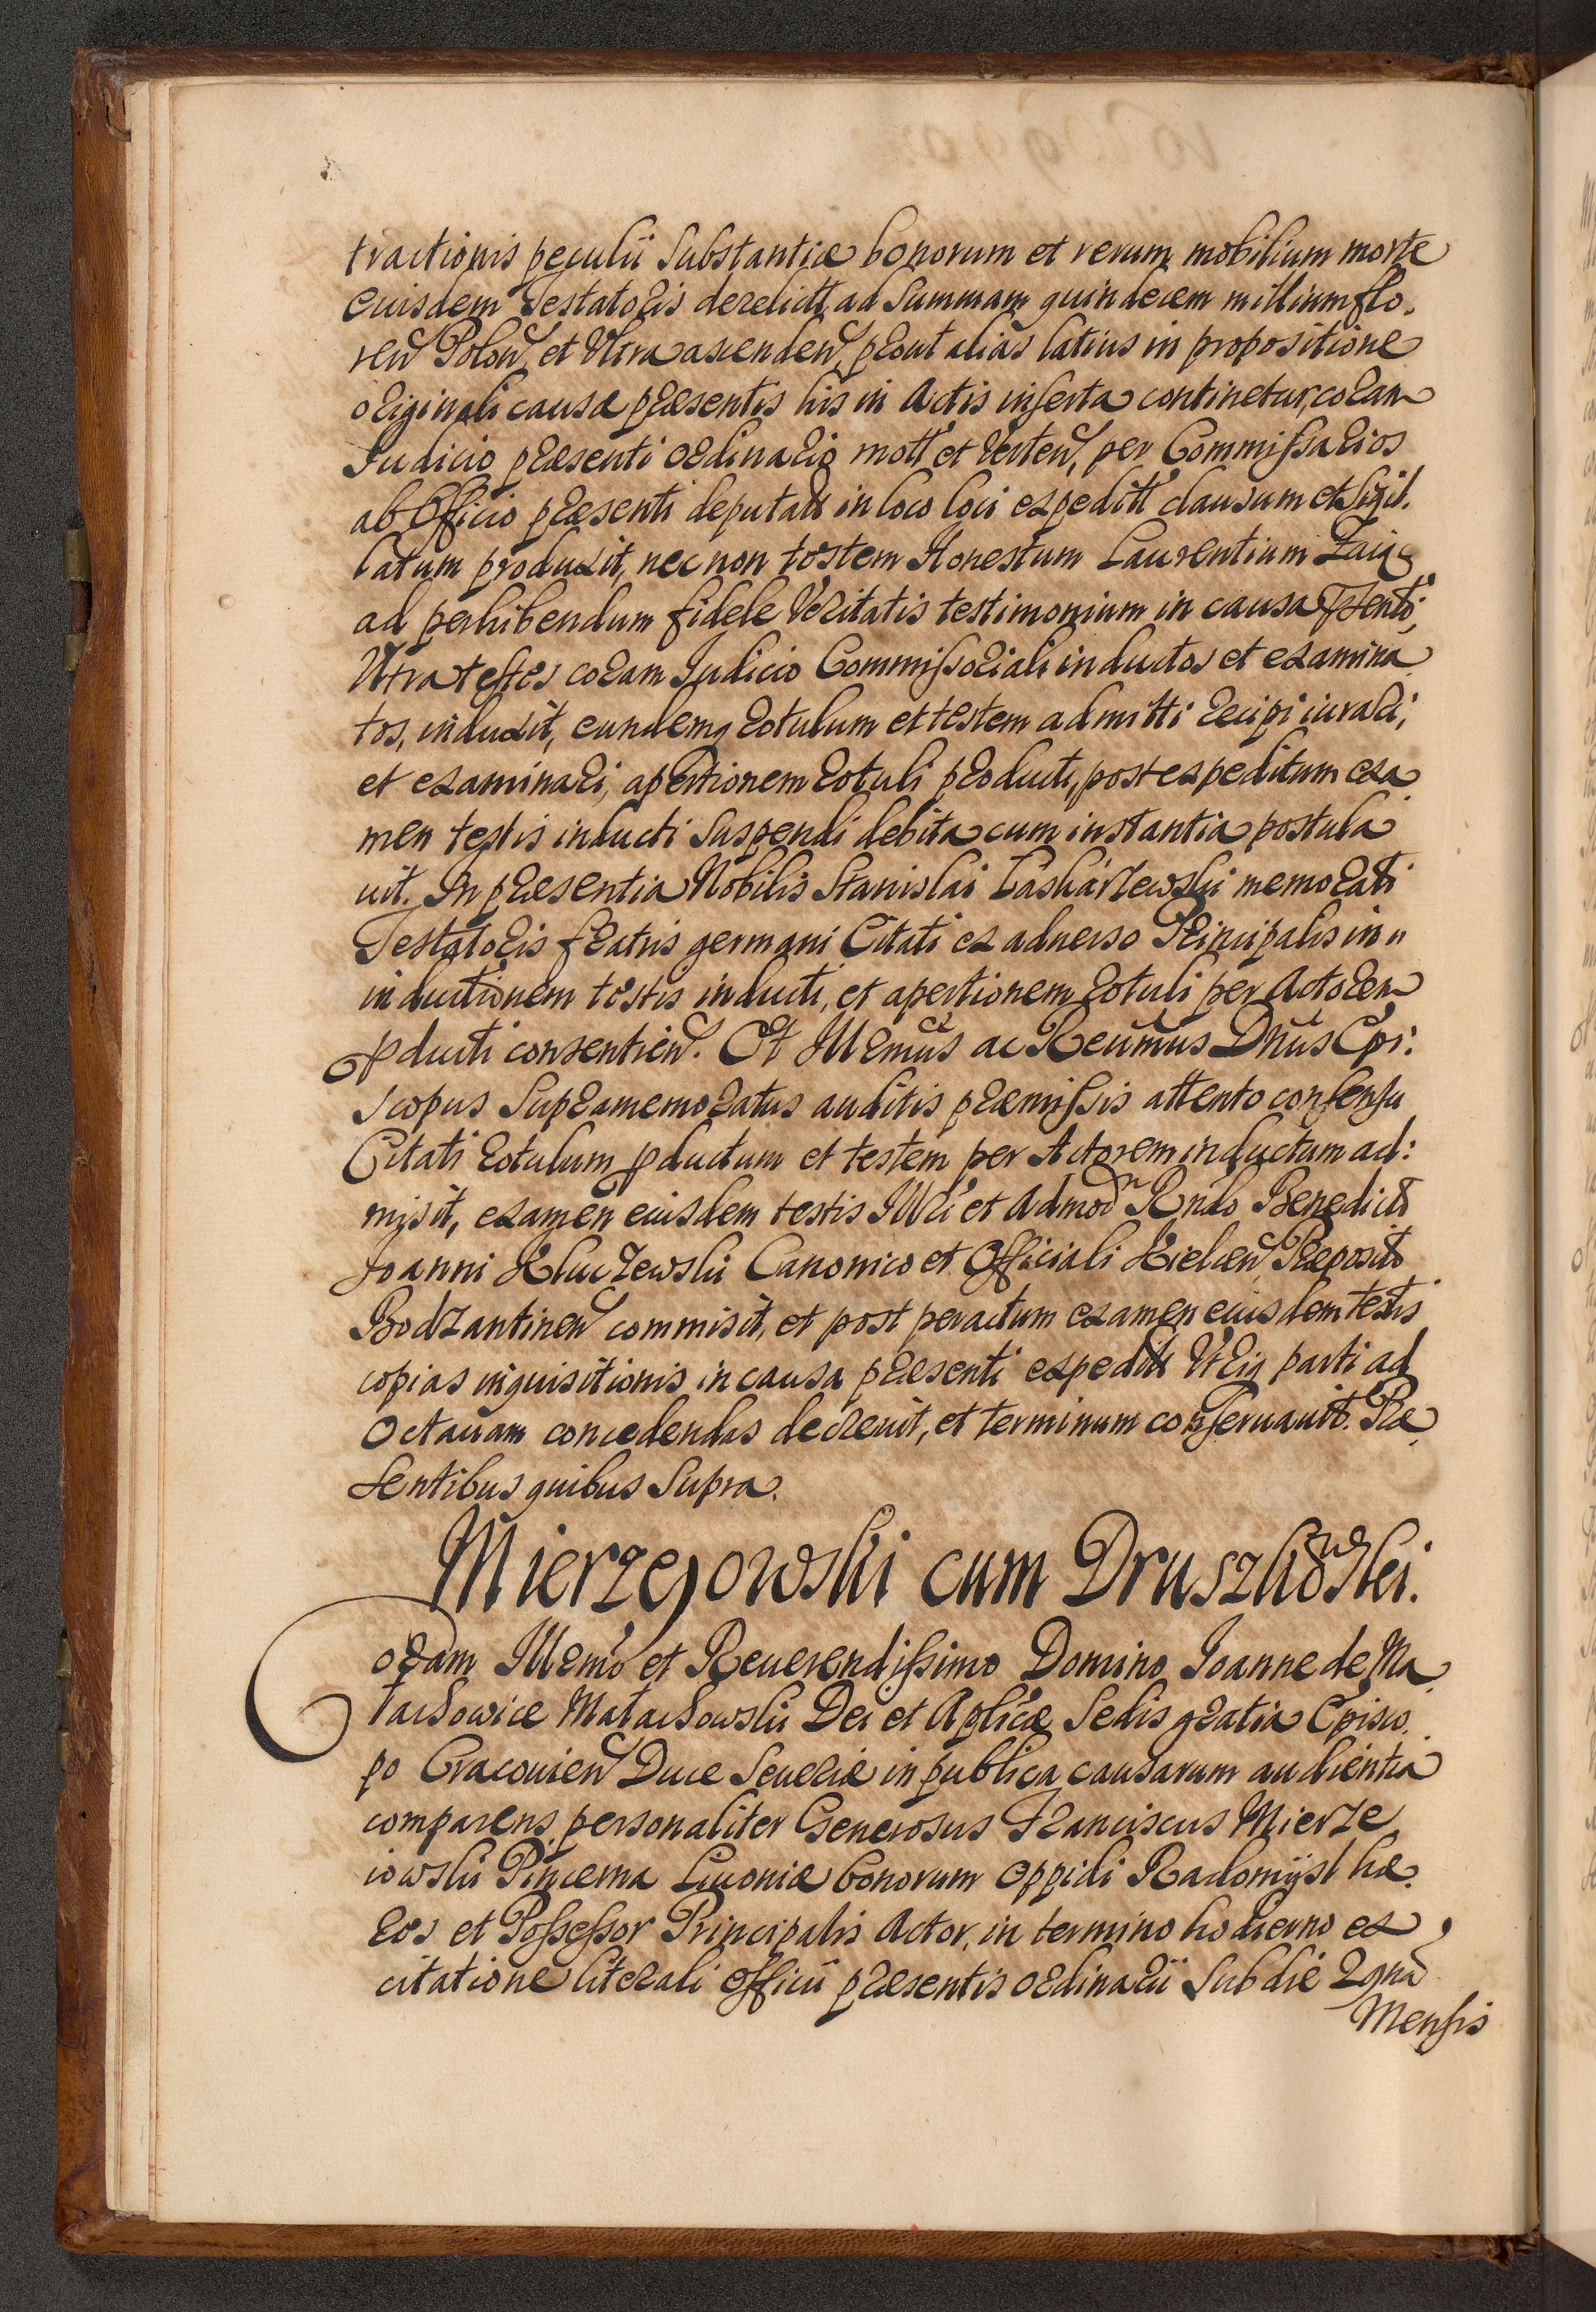 tractionis peculii Substantiæ bonorum et rerum mobilium morte
euisdem Testatoris derelictt, ad Summam quindecem millium flo.
ren Polon, et Ultra ascenden, prout alias latius in propositione
originali causæ præsentis his in Actis inserta continetur, coram
Judicio præsenti ordinario mott et Verten, per Commissarios
ab Officio præsenti deputatt in loco loci expeditt clausum et Sigil.
latum produxit, nec non testem Honestum Laurentium
ad perhibendum fidele Veritatis testimonium in causa
Ultra testes coram Judicio Commissoriali inductos et examina
tos, induxit, eundemq rotulum et testem admitti recipi iurari,
et examinari, apertionem rotuli producti, post expeditum exa
men testis inducti suspendi debita cum instantia postula
uit. In præsentia Nobilis Stanislai Laskarzewski memorati
Testatoris fratris germani Citati ex aduerso Principalis in"
inductionem testis inducti, et apertionem rotuli per Actorem
pducti consentien. Et Illrmus ac Reumus Dnus Epi:
scopus Supramemoratus auditis præmissis attento consensu
Citati rotulum pductum et testem per Actorem inductum ad:
misit, examen eiusdem testis Illri et Admod Rndo Benedicto
Joanni Kluczewski Canonico et Officiali Kielcen, Præposito
Bodzantinen commisit, et post peractum examen eiusdem testis
copias inquisitionis in causa præsenti expeditt Utriq parti ad
Octauam concedendas decreuit, et terminum conseruauit. Præ
sentibus quibus Supra.
Mierzejowski cum Druszkowski.
Coram Illrmo et Reuerendissimo Domino Joanne de Ma
lachowice Malachowski Dei et Aplicæ Sedis gratia Episco.
po Cracouien Duce Seueriæ in publica causarum audientia
comparens personaliter Generosus Franciscus Mierze
iowski Pincerna Liuoniæ bonorum oppidi Radomijsl hæ.
res et Possessor Principalis Actor, in termino hodierno ex
citatione literali officii præsentis ordinarii Sub die
Mensis